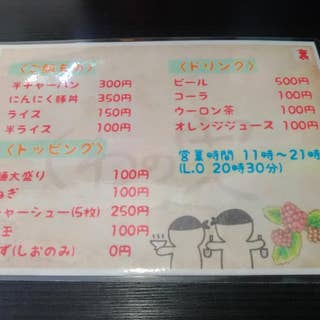 裏
〈ご飯もの〉
半チャーハン 300円
にんにく豚丼 350円
ライス 150円
半ライス 100円
〈トッピング〉
麺大盛り 100円
ねぎ 100円
チャーシュー(5枚) 250円
玉 100円
ず(しおのみ) 0円
〈ドリンク〉
ビール 500円
コーラ 100円
ウーロン茶 100円
オレンジジュース 100円
営業時間 11時〜21時
(L.O 20時30分)